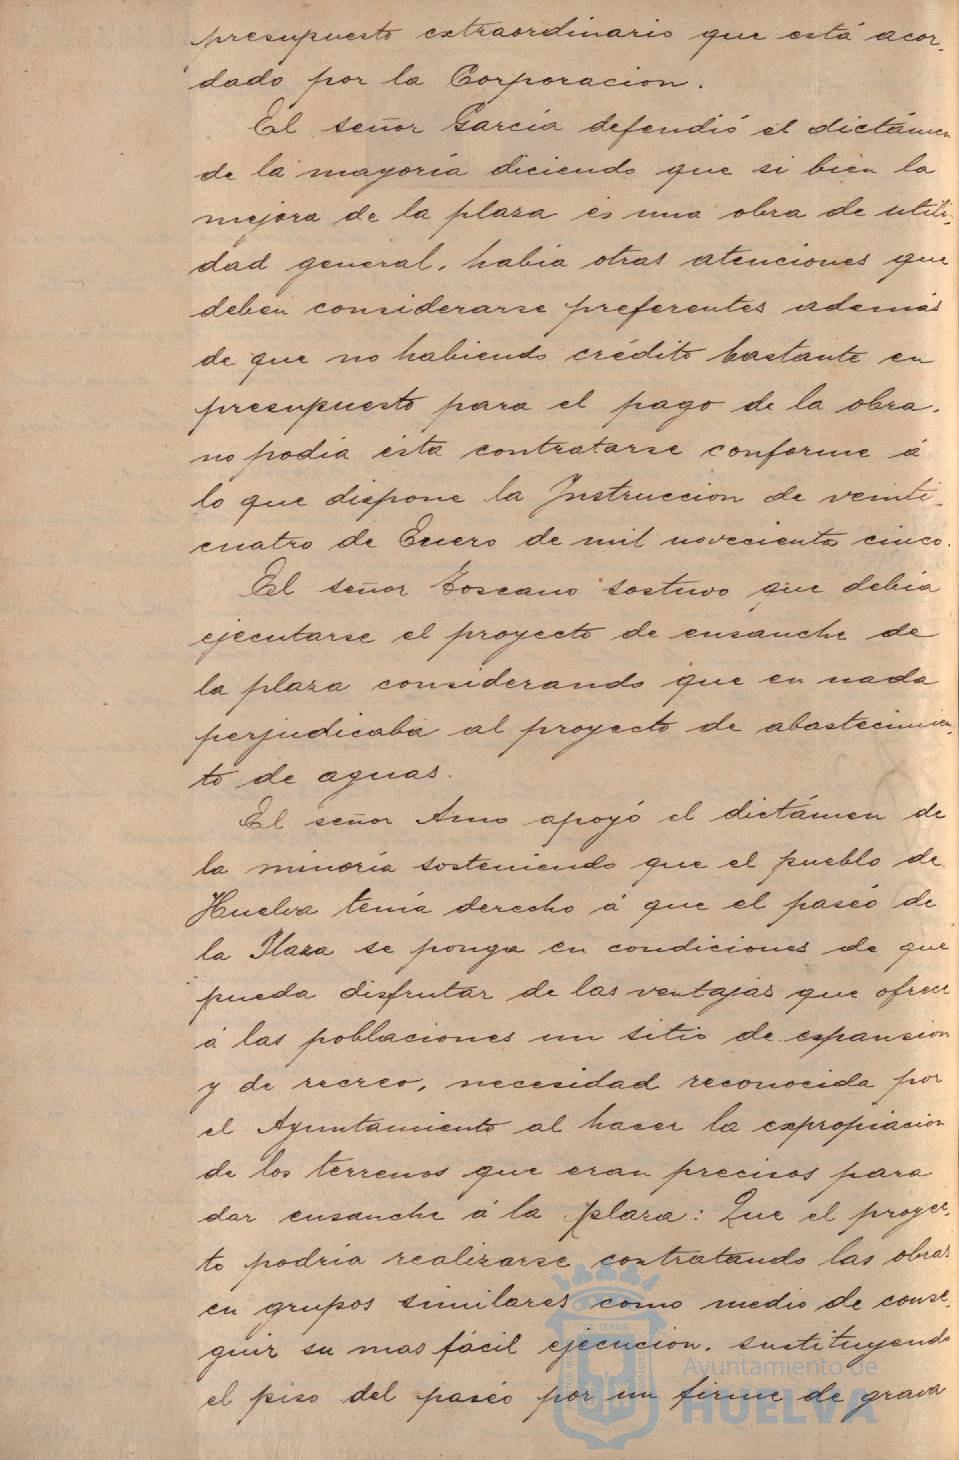 presupuesto extraordinario que está acor-
dado por la Corporacion.
El señor García defendió el dictámen
de la mayoría diciendo que si bien la
mejora de la plaza és una obra de utili-
dad general, había otras atenciones que
deben considerarse preferentes además
de que no habiendo crédito bastante en
presupuesto para el pago de la obra,
no podía ésta contratarse conforme á
lo que dispone la Instruccion de veinti-
cuatro de Enero de mil novecientos cinco.
El señor Toscano sostuvo que debía
ejecutarse el proyecto de ensanche de
la plaza considerando que en nada
perjudicaba al proyecto de abastecimien-
to de aguas.
El señor Amo apoyó el dictámen de
la minoría sosteniendo que el pueblo de
Huelva tenía derecho á que el paséo de
la Plaza se ponga en condiciones de que
pueda disfrutar de las ventajas que ofrece
á las poblaciones un sitio de expansion
y de recreo, necesidad reconocida por
el Ayuntamiento al hacer la expropiacion
de los terrenos que eran precisos para
dar ensanche á la plaza: Que el proyec-
to podría realizarse contratando las obras
en grupos similares como medio de conse-
guir su mas fácil ejecucion, sustituyendo
el piso del paséo por un firme de grava
Ayuntamiento de
HUELVA